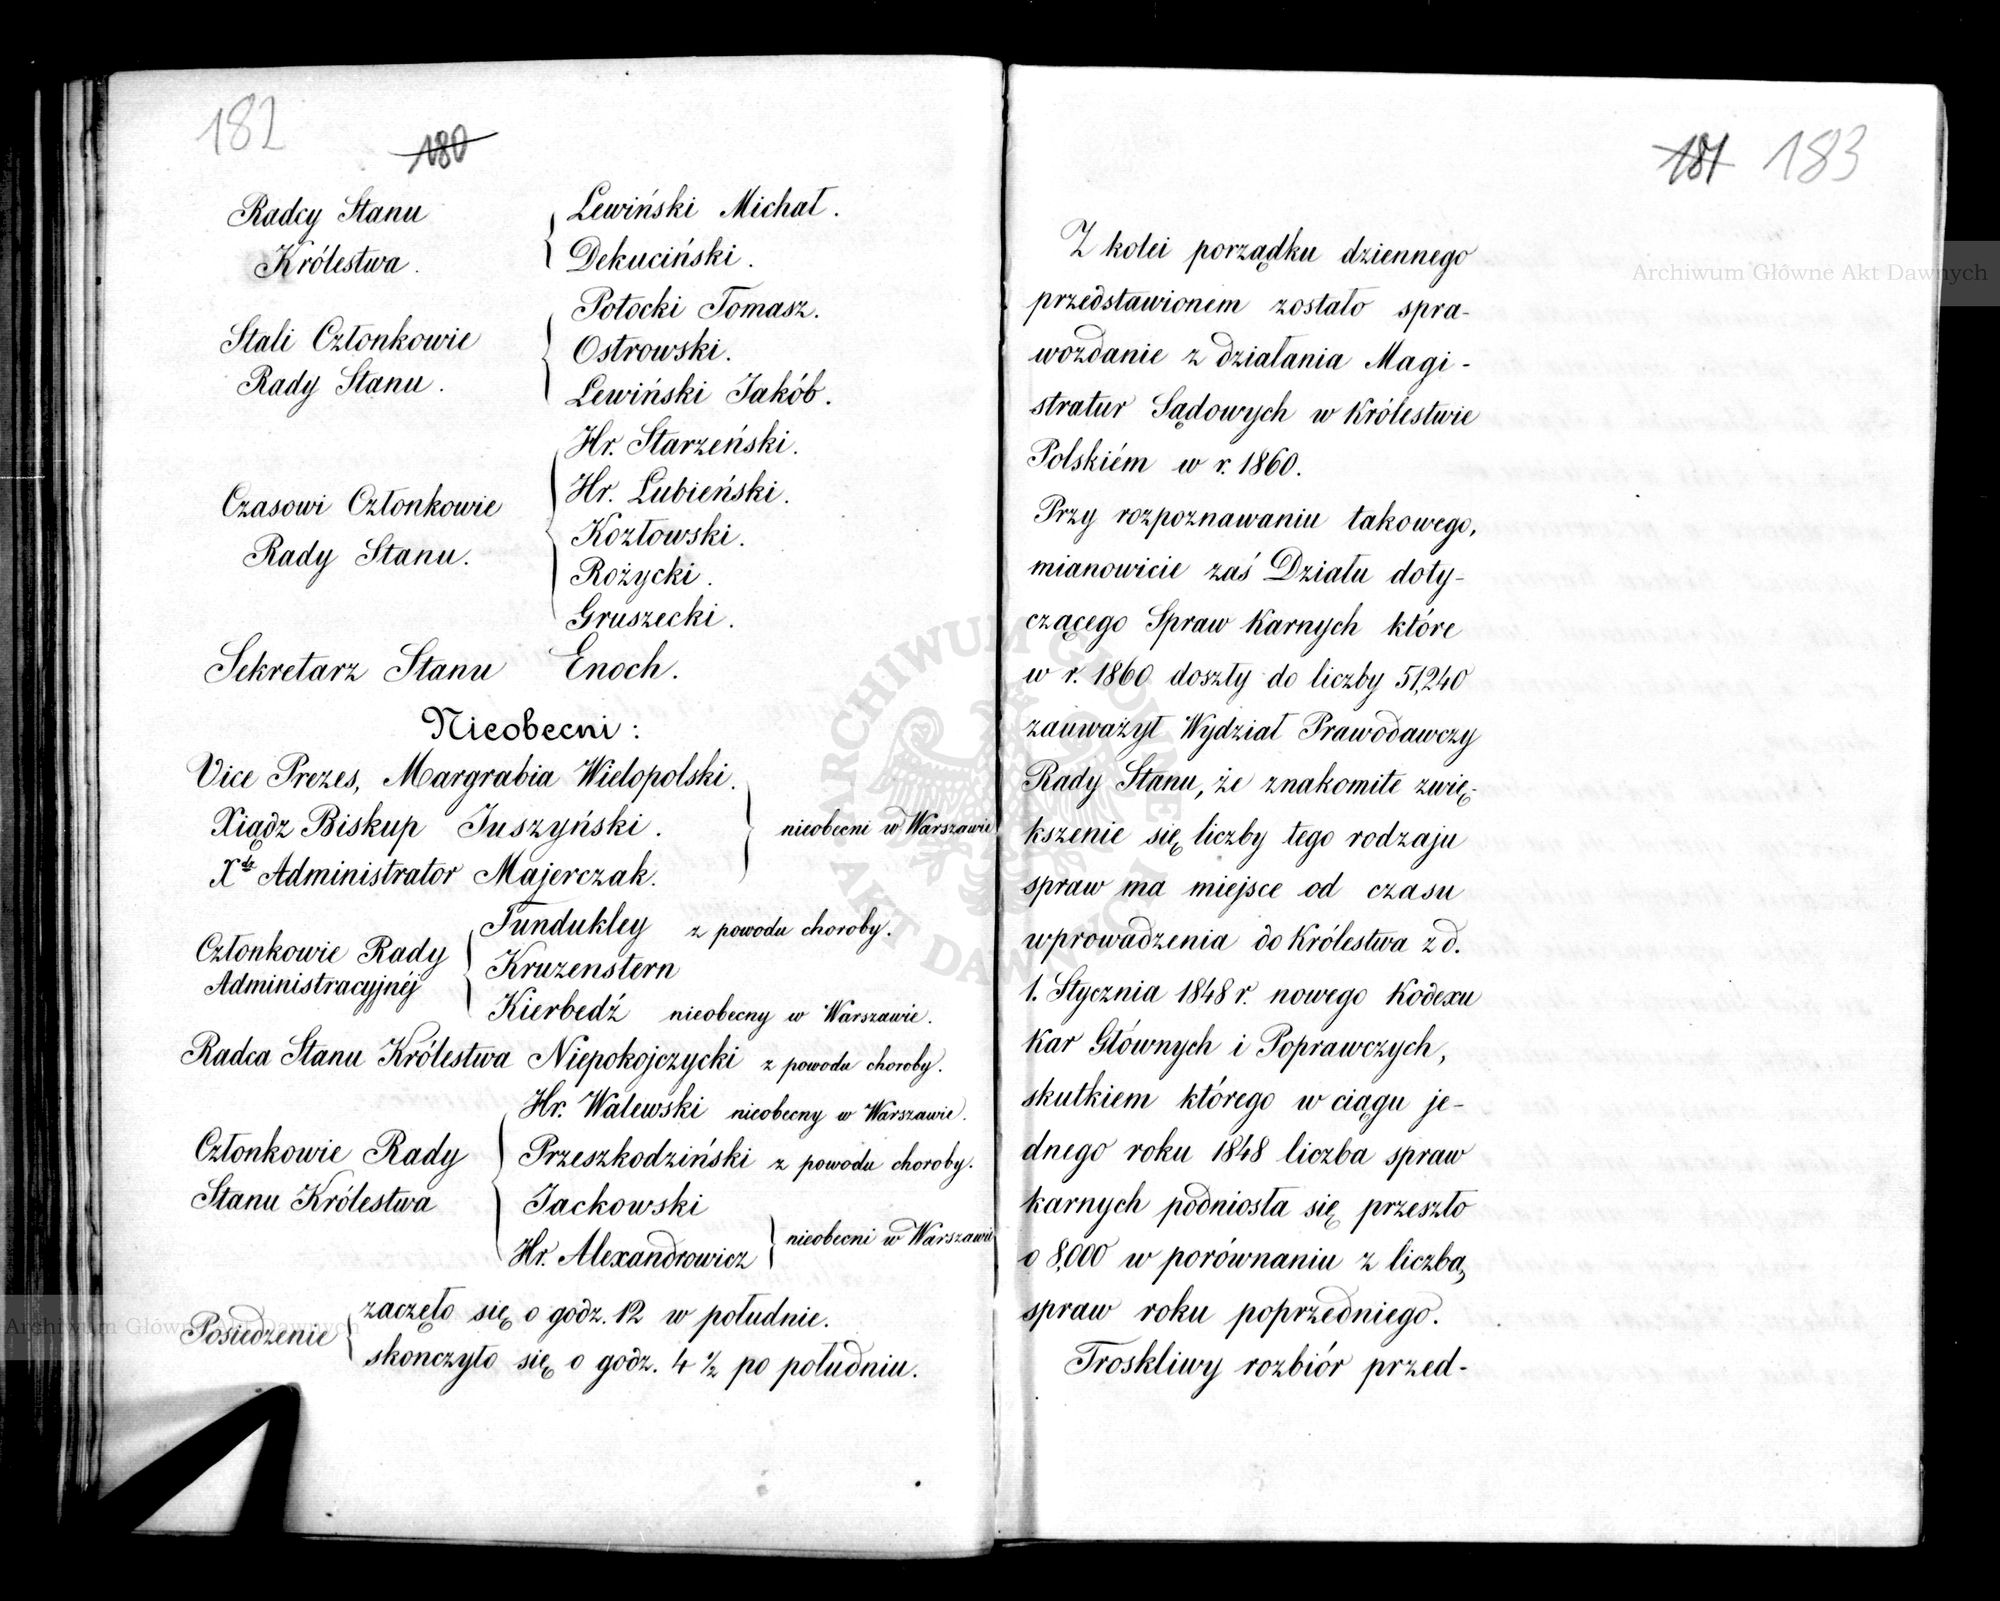 182
180
Radcy Stanu
Królestwa.
Lewiński Michał.
Dekuciński.
Stali Członkowie
Rady Stanu.
Potocki Tomasz.
Ostrowski.
Lewiński Jakób.
Czasowi Członkowie
Rady Stanu.
Hr. Starzeński.
Hr. Lubieński.
Kozłowski.
Rożycki.
Gruszecki.
Sekretarz Stanu Enoch.
Nieobecni:
Vice Prezes, Margrabia Wielopolski.
Xiądz Biskup Juszyński.
Xdz Administrator Majerczak.
nieobecni w Warszawie
Członkowie Rady
Administracyjnéj
Fundukley z powodu choroby.
Kruzenstern
Kierbedź nieobecny w Warszawie.
Radca Stanu Królestwa Niepokojczycki z powodu choroby.
Członkowie Rady
Stanu Królestwa
Hr. Walewski nieobecny w Warszawie.
Przeszkodziński z powodu choroby.
Jackowski
Hr. Alexandrowicz
nieobecni w Warszawie
Posiedzenie
zaczęło się o godz. 12 w południe.
skonczyło się o godz. 4 ½ po południu.
181 183
Z kolei porządku dziennego
przedstawionem zostało spra-
wozdanie z działania Magi-
stratur Sądowych w Królestwie
Polskiém w r. 1860.
Przy rozpoznawaniu takowego,
mianowicie zaś Działu doty-
czącego Spraw Karnych które
w r. 1860 doszły do liczby 51,240
zauważył Wydział Prawodawczy
Rady Stanu, że znakomite zwię-
kszenie się liczby tego rodzaju
spraw ma miejsce od czasu
wprowadzenia do Królestwa z d.
1. Stycznia 1848 r. nowego Kodexu
Kar Głównych i Poprawczych,
skutkiem którego w ciągu je-
dnego roku 1848 liczba spraw
karnych podniosła się przeszło
o 8,000 w porównaniu z liczbą
spraw roku poprzedniego.
Troskliwy rozbiór przed-
Archiwum Główne Akt Dawnych
Archiwum Główne Akt Dawnych
ARCHIWUM GŁÓWNE AKT DAWNYCH